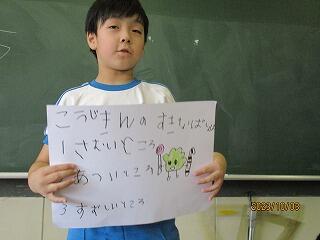 こうじきんの すきなばしょ
1 さむいところ
あついところ
3 すずしいところ
2023/10/03